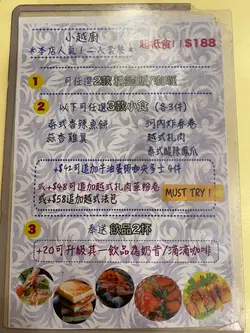 小越廚
*本店人氣!二人套餐*
超抵食! $188
1 可任選2款
2 以下可任選3款小食 (各3件)
泰式香辣魚餅
蒜香雞翼
河內炸春卷
越式扎肉
泰式酸辣鳳爪
或+$48可追加越式扎肉蒸粉卷
或+$58追加越式法包
MUST TRY!
3 奉送飲品2杯
+20可升級其一飲品為奶昔/滴滴咖啡